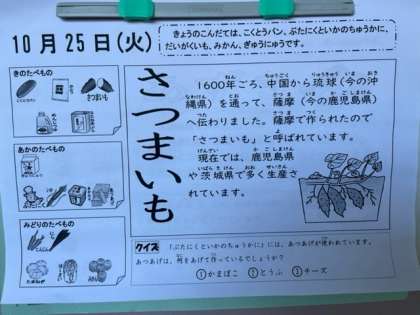 10月25日(火)
きょうのこんだては、こくとうパン、ぶたにくといかのちゅうかに、
だいがくいも、みかん、ぎゅうにゅうです。
きのたべもの
さつまいも
あかのたべもの
みどりのたべもの
たまねぎ
さつまいも
1600年ごろ、中国から琉球(今の沖
縄県)を通って、薩摩(今の鹿児島県)
へ伝わりました。薩摩で作られたので
「さつまいも」と呼ばれています。
現在では、鹿児島県
や茨城県で多く生産さ
れています。
クイズ 「ぶたにくといかのちゅうかに」には、あつあげが使われています。
あつあげは、何をあげて作っているでしょうか?
①かまぼこ ②とうふ ③チーズ